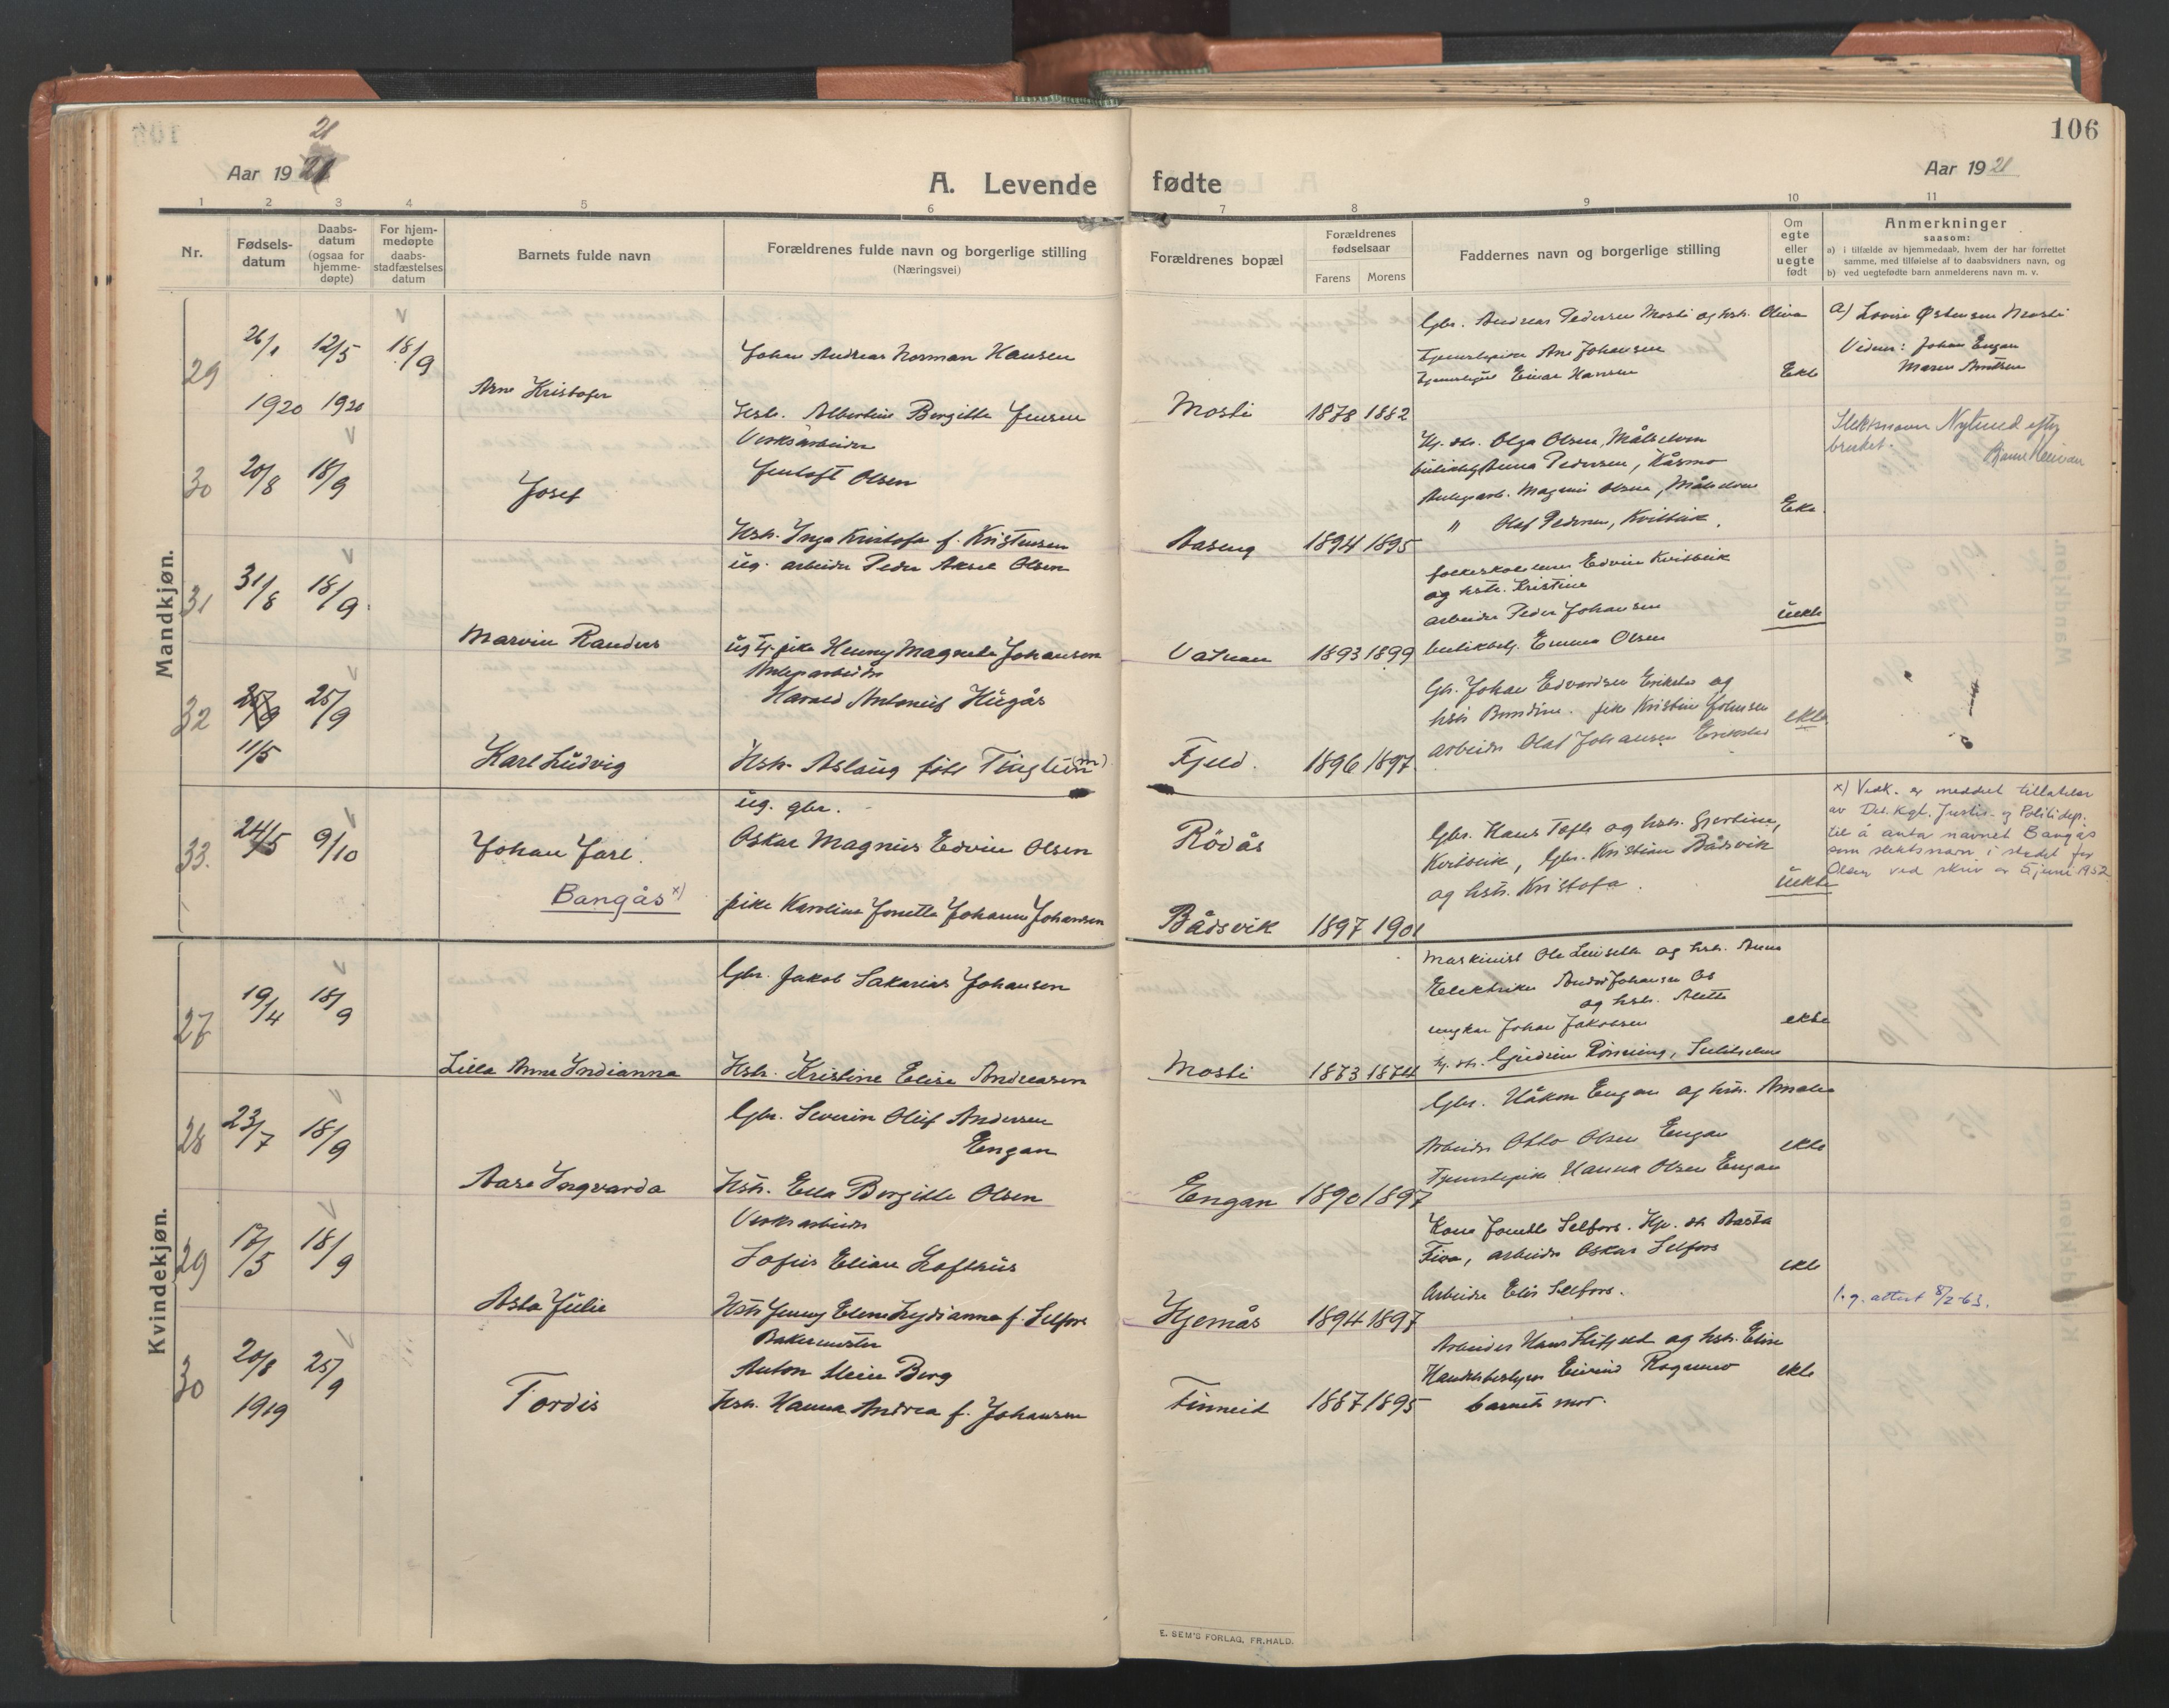 106
21
Aar 19 21
A. Levende fødte
Aar 19 21
1 2 3 4 5 6 7 8 9 10 11
Nr.
Fødsels-
datum
Daabs-
datum
(ogsaa for
hjemme-
døpte)
For hjem-
medøpte
daabs-
stadfæstelses
datum
Barnets fulde navn
Forældrenes fulde navn og borgerlige stilling
(Næringsvei)
Forældrenes bopæl
Forældrenes
fødselsaar
Farens Morens
Faddernes navn og borgerlige stilling
Om
egte
eller
uegte
født
Anmerkninger
saasom:
a) i tilfælde av hjemmedaab, hvem der har forrettet
samme, med tilføielse af to daabsvidners navn, og
b) ved uegtefødte barn anmelderens navn m. v.
Mandkjøn.
29
26/1 12/5 18/9
1920 1920
Arne Kristofer
Johan Andreas Norman Hansen
Hstr. Albertine Bergitte Jensen
Mosti 1878 1882
Gbr. Andreas Pedersen Mosti og hstr. Oliva
Tjenestepike Ane Johansen
Einar Hansen
Ekte
a) Lovise Østensen Mosti
Vidner: Johan Engan
Maren Arntsen
30
20/8 18/9
Josef
Verksarbeider
Jentoft Olsen
Hstr. Inga Kristofa f. Kristensen
Aaseng 1894 1895
Olga Olsen, Målselven
Anna Pedersen, Kåsmo
Magnus Olsen, Målselven
" Olaf Pedersen, Kvitblik.
Ekte
Slektsnavn Nylund efter
bruket.
31
31/8 18/9
Marvin Randers
ug. arbeider Peder Aksel Olsen
ug. tj. pike Henny Magnele Johansen
Vatnan 1893 1899
Edvin Kvitblik
og hstr. Kristine
arbeider Peder Johansen
butikbetj. Emma Olsen
Uekte
32
25/9 25/9
11/5
Karl Ludvig
Anlegsarbeider
Harald Antonius Hugås
Hstr. Aslaug født Tinglum (m)
Fjeld. 1896 1897
Gbr. Johan Edvardsen Erikstad og
hstr Bendine. pike Kristine Johnsen
arbeider Olaf Johansen Erikstad
ekte
33.
24/5 9/10
Johan Jarl.
Bangås x)
ug. gbr.
Oskar Magnus Edvin Olsen
pike Karoline Jonette Johanne Johansen
Rödås
Bådsvik 1897 1901
Gbr. Hans Tofte og hstr. Gjertine,
Kvitblik, Gbr. Kristian Bådsvik
og hstr. Kristofa.
Uekte
x) Vedk. er meddelt tillatelse
av Det. Kgl. Justis- og Politidep.
til å anta navnet Bangås
som slektsnavn i stedet for
Olsen ved skriv av 5 juni 1952
Kvindekjøn.
27
19/4 18/9
Lilla Anne Indianna
Gbr. Jakob Sakarias Johansen
Hstr. Kristine Elise Andreasen
Mosti 1873 1874
Maskinist Ole Leiseth og hstr. Anna
Elektriker Andor Johansen Os
og hstr. Alette
ungkar Johan Jakobsen
Gudrun Rönning, Sulitjelma
ekte
28
23/7 18/9
Aase Ingvarda
Gbr. Severin Oluf Andersen
Engan
Hstr. Ella Bergitte Olsen
Engan 1890 1897
Gbr. Håkon Engan og hstr. Amalie
Arbeider Otto Olsen Engan
Tjenestepike Hanna Olsen Engan
ekte
29
17/5 18/9
Asta Julie
Verksarbeider
Sofus Elian Lofthus
Hstr Jenny Elene Lydianna f. Selfors
Hjemås 1894 1897
Kone Jonette Selfors. Hj. dt. Aasta
Five, arbeider Oskar Selfors
Arbeider Elis Selfors.
ekte
l.g. attest 8/2-63.
30
20/8 25/9
1919
Tordis
Bakermester
Anton Meier Berg
Hstr. Hanna Andrea f. Johansen
Finneid 1887 1895
Arbeider Hans Slitfjeld og hstr. Elise
Handelsbestyrer Eivind Rognmo
barnets mor.
ekte
E. SEM'S FORLAG, FR.HALD.